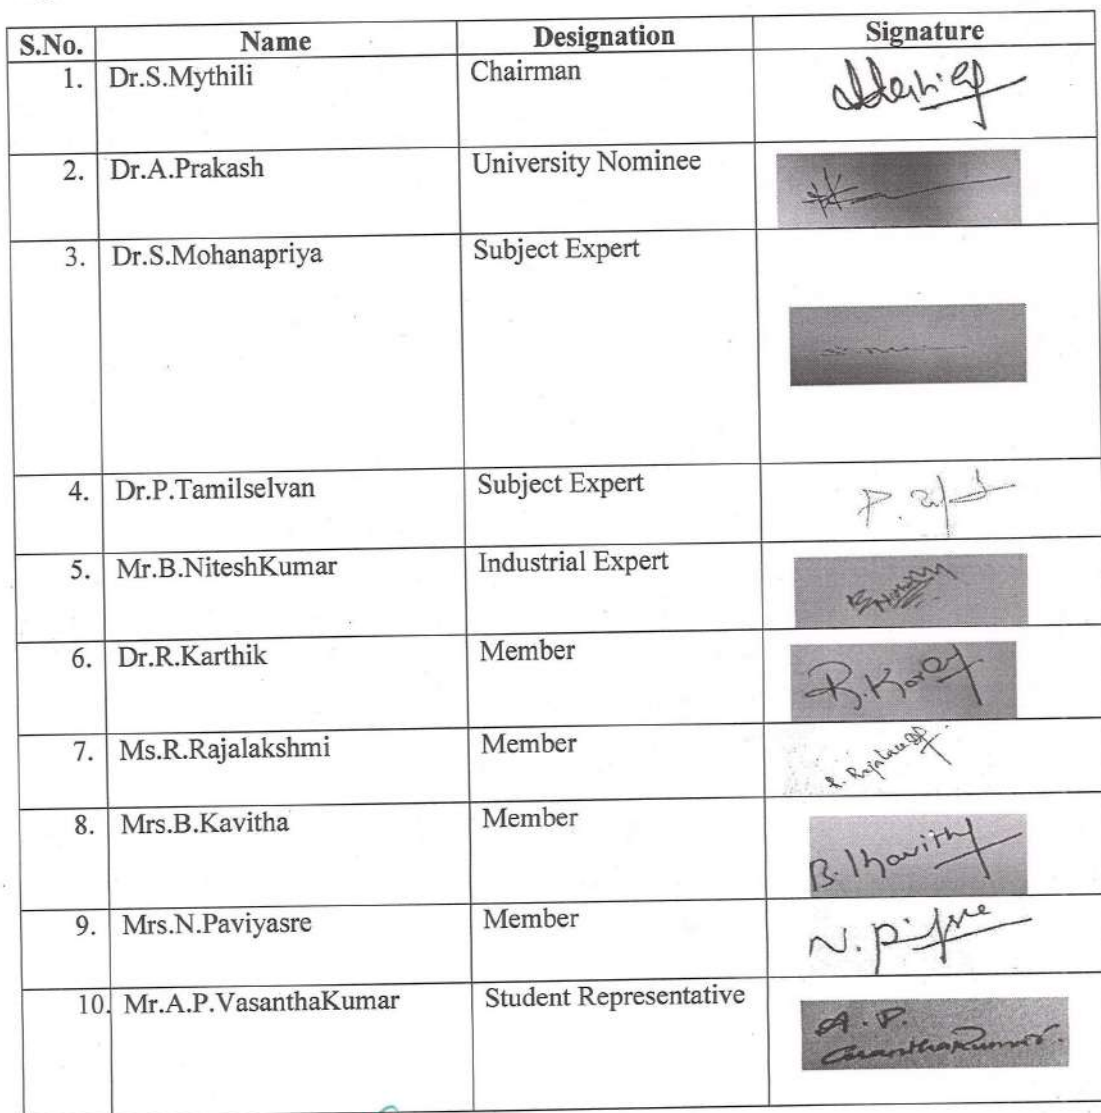 S.No. Name Designation Signature
1. Dr.S.Mythili Chairman
2. Dr.A.Prakash University Nominee
3. Dr.S.Mohanapriya Subject Expert
4. Dr.P.Tamilselvan Subject Expert P.
5. Mr.B.NiteshKumar Industrial Expert
6. Dr.R.Karthik Member R.
7. Ms.R.Rajalakshmi Member
8. Mrs.B.Kavitha Member B.
9. Mrs.N.Paviyasre Member N.
10. Mr.A.P.VasanthaKumar Student Representative A.P.